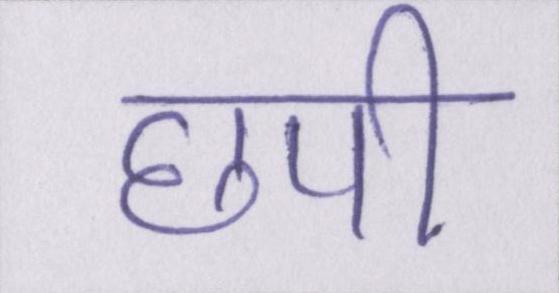 छपी